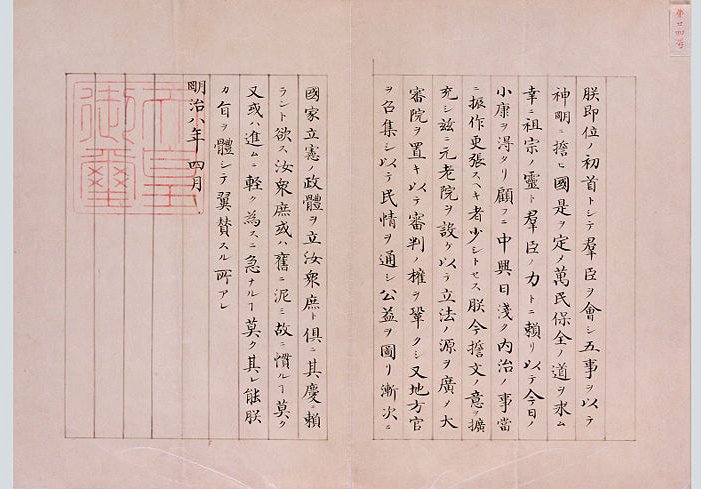 第廿四号
朕即位ノ初首トシテ羣臣ヲ會シ五事ヲ以テ
神明ニ誓ヒ國是ヲ定メ萬民保全ノ道ヲ求ム
幸ニ祖宗ノ靈ト羣臣ノ力トニ頼リ以テ今日ノ
小康ヲ得タリ顧フニ中興日淺ク内治ノ事當
ニ振作更張スヘキ者少シトセス朕今誓文ノ意ヲ擴
充シ茲ニ元老院ヲ設ケ以テ立法ノ源ヲ廣メ大
審院ヲ置キ以テ審判ノ權ヲ鞏クシ又地方官
ヲ召集シ以テ民情ヲ通シ公益ヲ圖リ漸次ニ
國家立憲ノ政體ヲ立汝衆庶ト倶ニ其慶ニ頼
ラント欲ス汝衆庶或ハ舊ニ泥ミ故ニ慣ルヿ莫ク
又或ハ進ムニ軽ク為スニ急ナルヿ莫ク其レ能朕
カ旨ヲ體シテ翼賛スル所アレ
明治八年四月
天皇
御璽